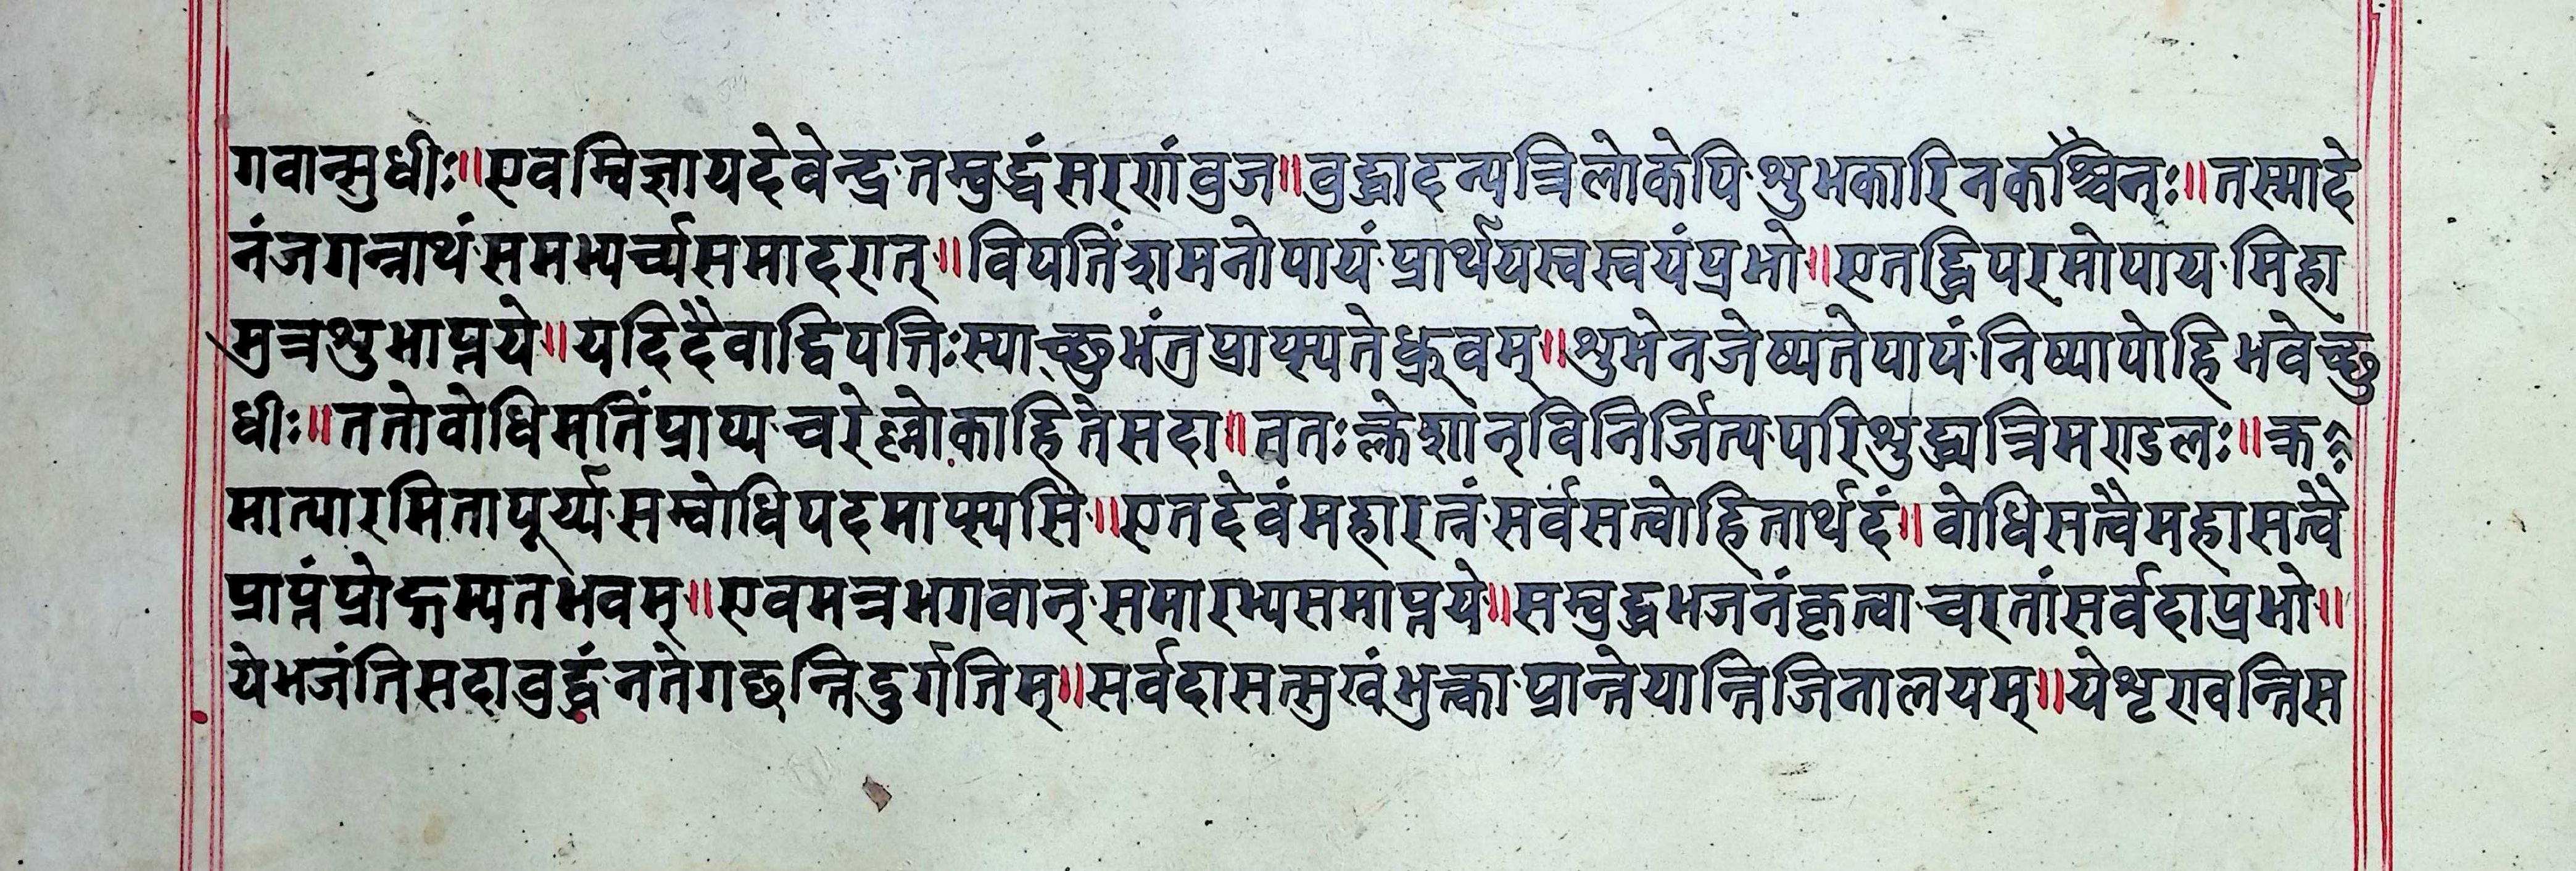 गवान्सुधीः॥एवम्विज्ञायदेवेन्द्र·तम्वुद्धंसरणंव्रज॥वुद्धादन्यत्रिलोकेपि·शुभकारिनकश्चिनः॥तस्मादे
नंजगन्नाथं·समभ्यर्च्यसमादरात्॥विपतिंशमनोपायं·प्रार्थयस्वस्वयंप्रभो॥एतद्धिपरमोपाय·मिहा
मुत्रशुभाप्तये॥यदिदैवाद्विपत्तिःस्याच्छुभंतुप्राप्स्यतेध्रुवम्॥शुभेनजेष्यतेपापं·निष्पापोहिभवेच्छु
धीः॥ततोवोधिमतिंप्राप्य·चरेल्लोकाहितेसदा॥ततःक्लेशान्विनिर्जित्य·परिशुद्धात्रिमण्डलः॥क्र
मात्पारमितापूर्य्य·सम्वोधिपदमाप्स्यसि॥एतदेवंमहारत्नं·सर्वसत्वोहितार्थदं॥वोधिसत्वैमहासत्वै
प्राप्तंप्रोद्गम्यतभवम्॥एवमत्रभगवान्·समारभ्यसमाप्तये॥सम्वुद्धभजनंकृत्वा·चरतांसर्वदाप्रभो॥
येभजंतिसदावुद्धं·नतेगछन्तिदुर्गतिम्॥सर्वदासत्सुखंभुक्त्का·प्रान्तेयान्तिजिनालयम्॥येशृण्वन्तिस